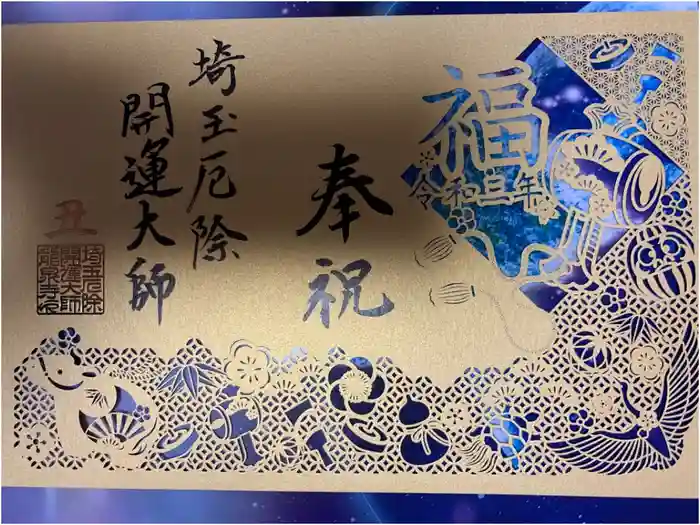 福
令和丑年
奉祝
埼玉厄除
開運大師
丑
埼玉厄除
開運大師
龍泉寺